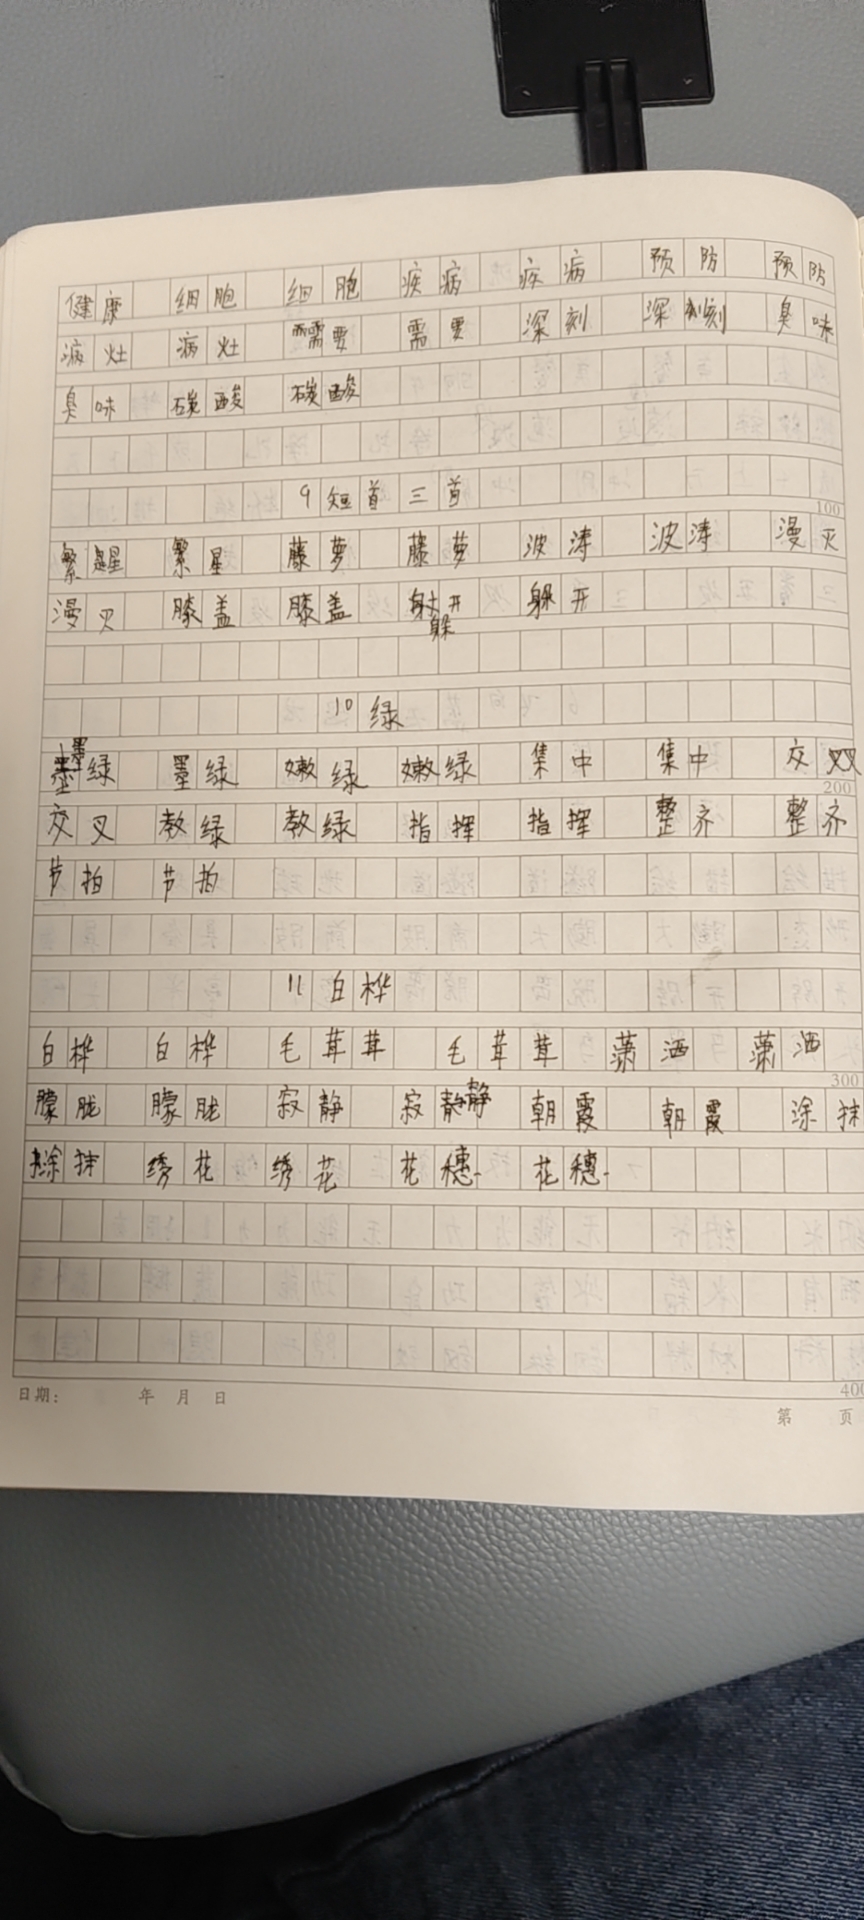 健康 细胞 细胞 疾病 疾病 预防 预防
病灶 病灶 需要 需要 深刻 深刻 臭味
臭味 碳酸 碳酸
100
9 短首三首
繁星 繁星 藤萝 藤萝 波涛 波涛 漫灭
漫灭 膝盖 膝盖 躲开 躲开
10 绿
墨绿 墨绿 嫩绿 嫩绿 集中 集中 交叉
200
交叉 教绿 教绿 指挥 指挥 整齐 整齐
节拍 节拍
11 白桦
白桦 白桦 毛茸茸 毛茸茸 潇洒 潇洒
300
朦胧 朦胧 寂静 寂静 朝霞 朝霞 涂抹
涂抹 绣花 绣花 花穗 花穗
400
日期： 年 月 日
第 页